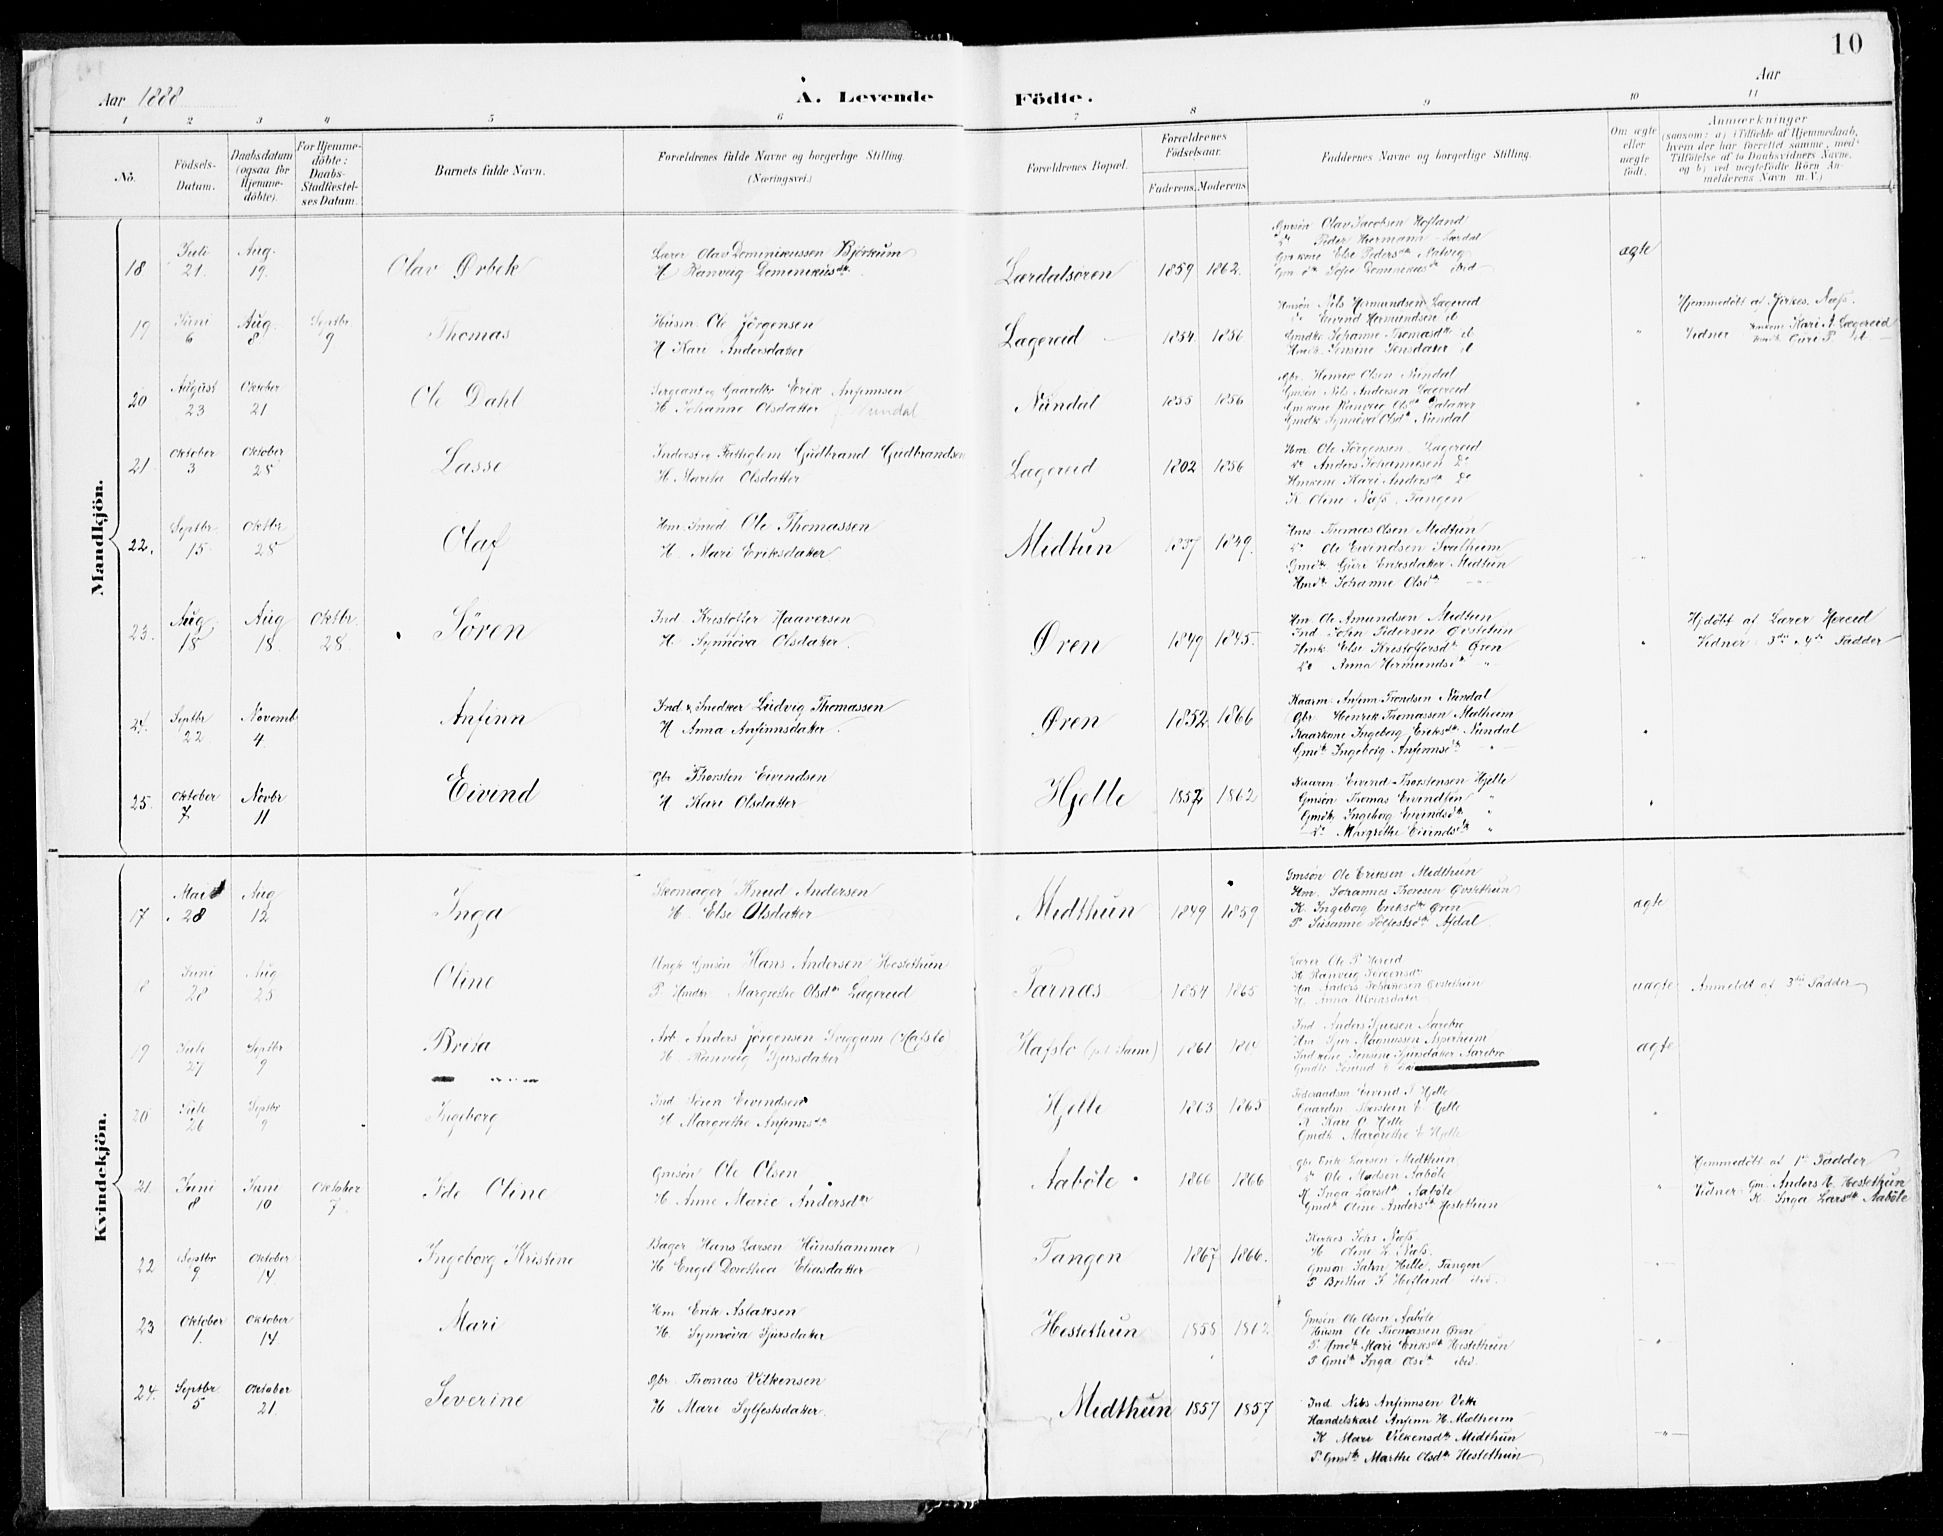 10
Aar 1888
A. Levende
Födte.
Aar
1 2 3 4 5 6 7 8 9 10 11
No.
Födsels-
Datum.
Daabsdatum
(ogsaa for
Hjemme-
döbte).
For Hjemme-
döbte:
Daabs-
Stadfæstel-
ses Datum.
Barnets fulde Navn.
Forældrenes fulde Navne og borgerlige Stilling.
(Næringsvei.)
Forældrenes Bopæl.
Forældrenes
Födselsaar.
Faderens. Moderens.
Faddernes Navne og borgerlige Stilling.
Om ægte
eller
uægte
födt.
Anmærkninger
(saasom: a) i Tilfælde af Hjemmedaab,
hvem der har forrettet samme, med
Tilföielse af to Daabsvidners Navne,
og b) ved uægtefödte Börn An-
melderens Navn m. V.)
Mandkjön.
18 Juli 21 Aug. 19. Olav Ørbek
Lærer Olav Dominikussen Bjørkum
H Ranveig Dominikusdtr.
Lærdalsøren 1859 1862.
Gmsøn Olav Jacobsen Hofland
Do Peder Hermann Lærdal
ægte
19 Juni 6 Aug. 8 Septbr 9 Thomas
Husm. Ole Jörgensen
H Kari Andersdatter
Lægereid 1854 1856
Hmsøn Nils Hermundsen Lægereid
Do Eivind Hermundsen ib
Gmdtr Johanne Thomasdtr ib
Hmdtr Jensine Jensdatter ib
"
Hjemmedöbt af Kirkes. Næss.
Vidner Kari A. Lægereid
Guri P. ib
20 August 23 Oktober 21 Ole Dahl
Sergeant og Gaardbr Erik Anfinnsen
H Johanne Olsdatter Nundal
Nundal 1855 1856
Gbr. Henrik Olsen Nundal
Gmsøn Nils Andersen Lægereid
Gmdtr Synnöva Olsdtr Nundal
"
21 Oktober 3 Oktober 28 Lasse
Inderst og Fattiglem Gudbrand Gudbrandsen
H Marita Olsdatter
Lægereid 1802 1856
Hm Ole Jörgensen Lægereid
Do Anders Johannesen Do
Hmkone Kari Andersdtr Do
K Oline Næss, Tangen
"
22. Septbr 15 Oktbr 28 Olaf
Hm. Smed Ole Thomassen
H. Mari Eriksdatter
Midtun 1837 1849.
Hms Thomas Olsen Midtun
Do Ole Eivindsen Svalheim
Gmdtr Guri Eriksdatter Midtun
Hmdtr Johanne Olsdtr "
"
23. Aug 18 Aug 18 Oktbr. 28. Sören
Ind Kristoffer Haaversen
H Synnöva Olsdatter.
Øren 1849 1845.
Hm Ole Amundsen Midtun
Ind John Pedersen Qvitetun
Hmk Else Kristoffersdtr Øren
Do Anna Hermundsdtr "
"
Hjdöbt af Lærer Hereid
Vidner: 3die & 4de Fadder
24. Septbr 22 Novemb 4. Anfinn
Ind & Snedker Ludvig Thomassen
H Anna Anfinnsdatter.
Øren 1852. 1866
Kaarm. Anfinn Trondsen Nundal
Gbr. Henrik Thomassen Mælheim
Kaarkone Ingeborg Eriksdtr Nundal
Gmdtr Ingeborg Anfinnsdtr "
"
25. Oktober 7 Novbr 11 Eivind
Gbr Thorsten Eivindsen
H Kari Olsdatter
Hjelle 1857 1862
Kaarm Eivind Thorstensen Hjelle
Gmsøn Thomas Eivindsen "
Gmdtr Ingeborg Eivindsdtr "
Do Margrethe Eivindsdtr "
"
Kvindekjön.
17 Mai 28 Aug 12 Inga
Skomager Knud Andersen
H. Else Olsdatter
Midthun 1849 1859
Gmsøn Ole Eriksen Midthun
Hm. Johannes Thoresen Qvitethun
K. Ingeborg Eriksdtr Øren
P. Susanne Sölfestsdtr Afdal.
ægte
18 Juni 28 Aug 25 Oline
Ungk Gmsøn Hans Andersen Hestethun
P. Hmdtr Margrethe Olsdtr Lægereid
Tarnæs 1854 1865
Lærer Ole P Hereid
K Ranveig Jörgensdtr
Hm Anders Johanesen Qvitethun
uægte Anmeldt af 3die Fadder
19 Juli 27 Septbr 9 Brita
Arb. Anders Jörgensen Sviggum (Hafslo)
H. Ranveig Sjursdatter
Hafslo 1861
Ind Anders Sjursen Aarebro
Hm Sjur Magnussen Asperheim
Indkone Jensine Sjursdatter Aarebro
ægte
20 Juli 26 Septbr 9 Ingeborg
Ind Sören Eivindsen
H Margrethe Anfinnsdtr
Hjelle 1863 1865
Föderaadsm Eivind T Hjelle
Gaardm Thorstein E Hjelle
K Kari O Hjelle
Gmdtr Margrethe E Hjelle
"
21. Juni 8 Juni 10 Oktober 7. Ide Oline
Gmsøn Ole Olsen
H Anne Marie Andersdtr
Aaböle 1866 1866
Gbr Erik Larsen Midthun
Do Ole Madsen Aaböle
K Inga Larsdtr Aaböle
Gmdtr Oline Andersdtr Hestethun
"
Hjemmedöbt af 1ste Fadder
Vidner: Gm. Anders E. Hestethun
K Inga Larsdtr Aaböle
22 Septbr 9 Oktober 14 Ingeborg Kristine
Bager Hans Larsen Hunshammer
H Engel Dorothea Eliasdatter
Tangen 1867 1866.
Kirkes. Johs Næss
K. Oline L. Næss.
Gmsøn John Hille, Tangen
P Britha J Hofland ibid.
"
23 Oktober 1. Oktober 14 Mari
Hm Erik Aslaksen
H. Synnöva Sjursdatter
Hestethun 1858 1862
Gmsøn Ole Olsen Aaböle
Husm Ole Thomassen Øren
P. Hmdtr Mari Eriksdtr Hestethun
P. Gmdtr Inga Olsdtr ibid.
"
24. Septbr. 5 Oktober 21. Severine
Gbr. Thomas Vilkensen
H Mari Sylfestsdatter.
Midthun 1857 1857
Ind Nils Anfinnsen Vetti
Handelskarl Anfinn H. Mælheim
K Mari Vilkensdtr Midthun
P. Gmdtr Marthe Olsdtr Hestethun
"